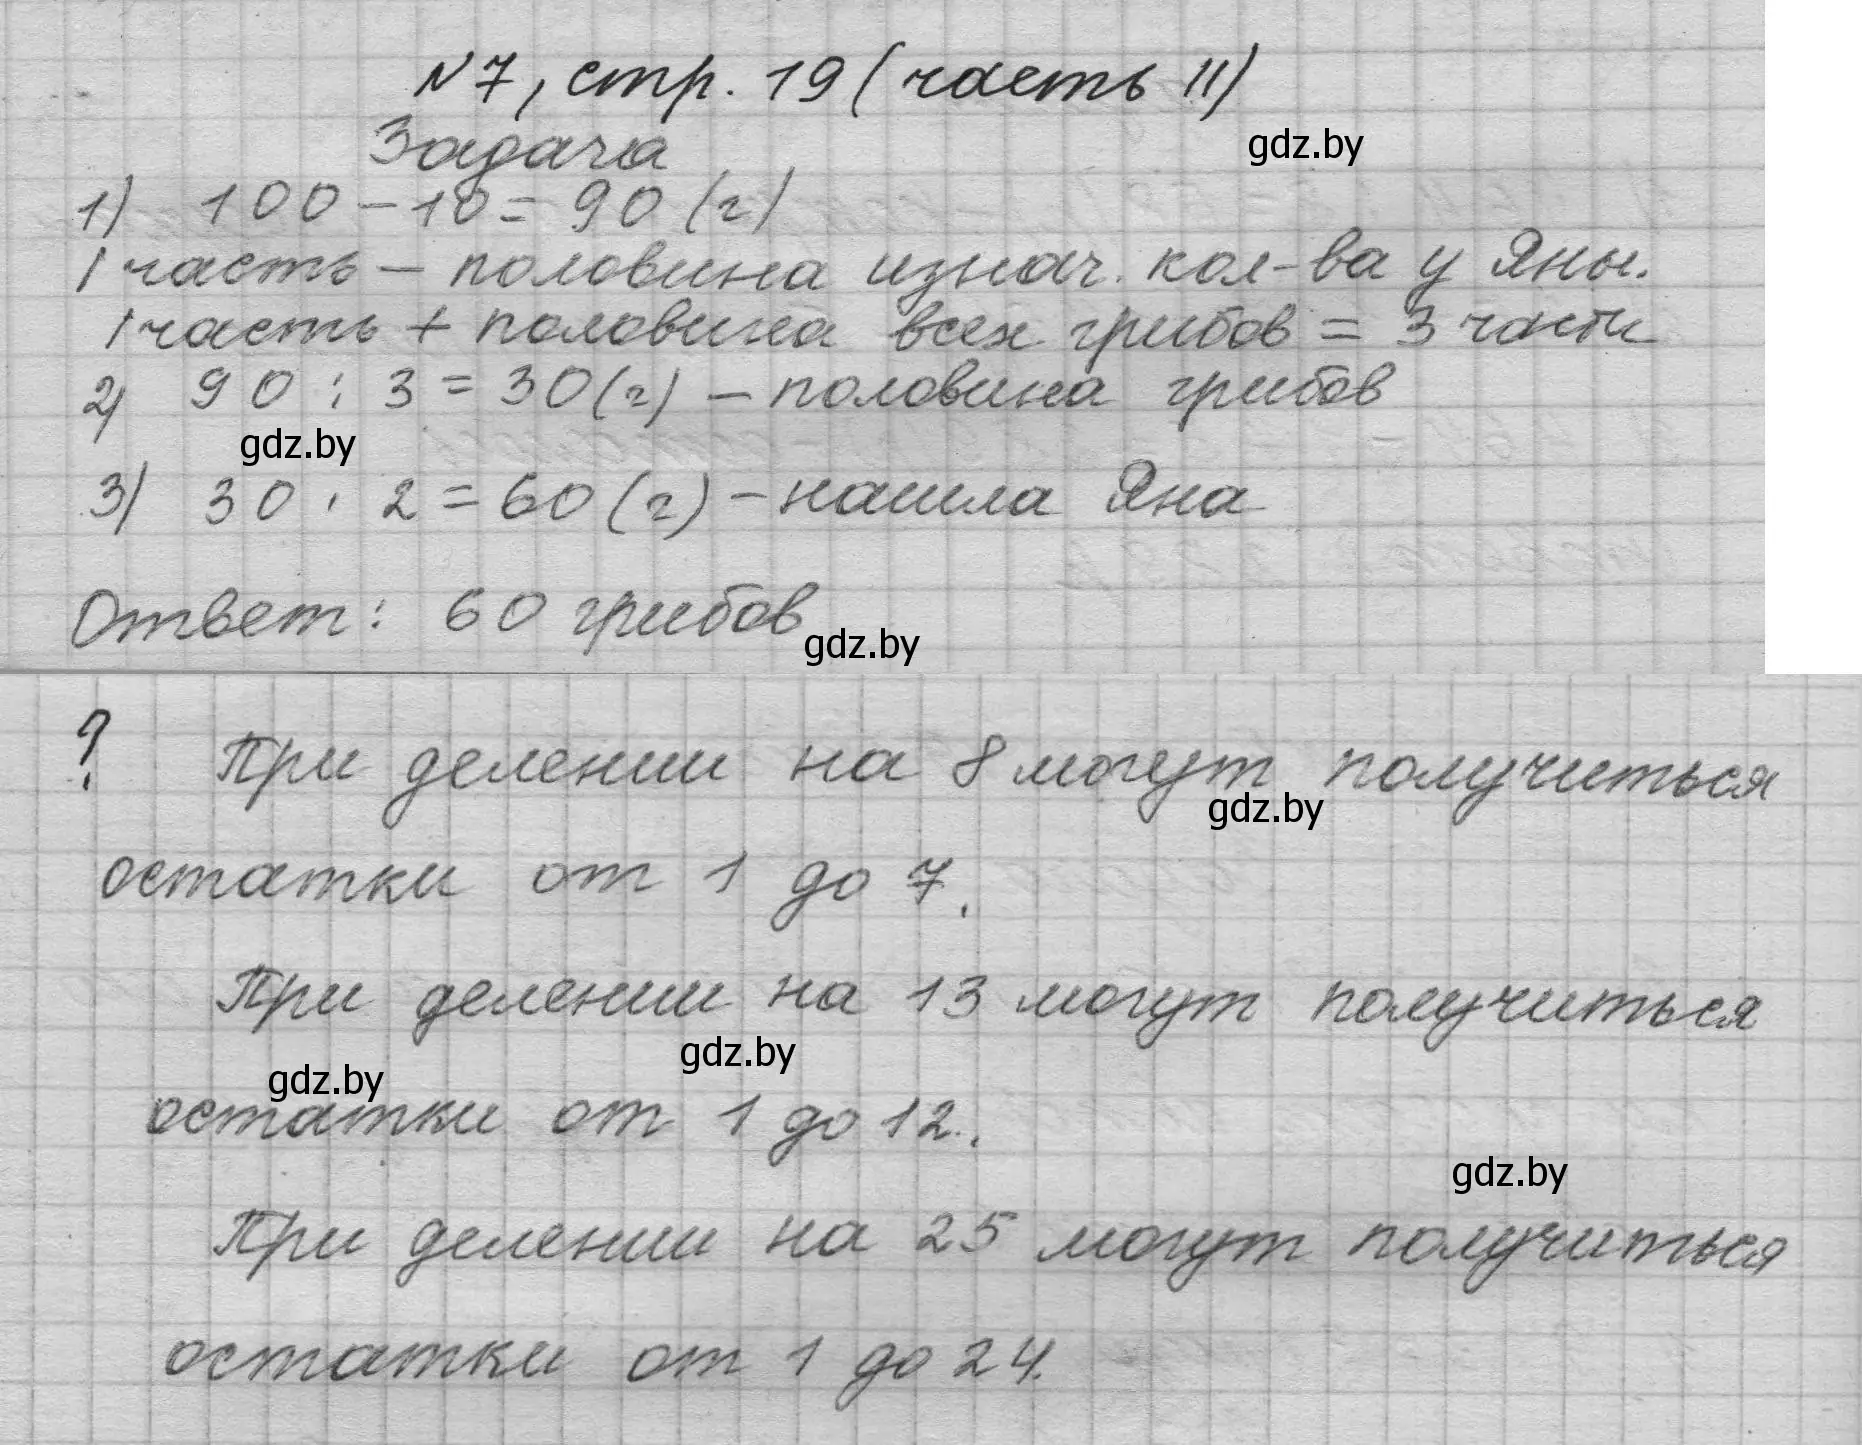 N7, стр. 19 (часть II)
gdz.by
Задача
1) 100 - 10 = 90 (г)
1 часть - половина изнач. кол-ва у Яны.
1 часть + половина всех грибов = 3 части
2) 90 : 3 = 30 (г) - половина грибов
gdz.by
3) 30 · 2 = 60 (г) - нашла Яна
Ответ: 60 грибов
gdz.by
? При делении на 8 могут получиться
gdz.by
остатки от 1 до 7.
При делении на 13 могут получиться
gdz.by
gdz.by
остатки от 1 до 12.
gdz.by
При делении на 25 могут получиться
остатки от 1 до 24.